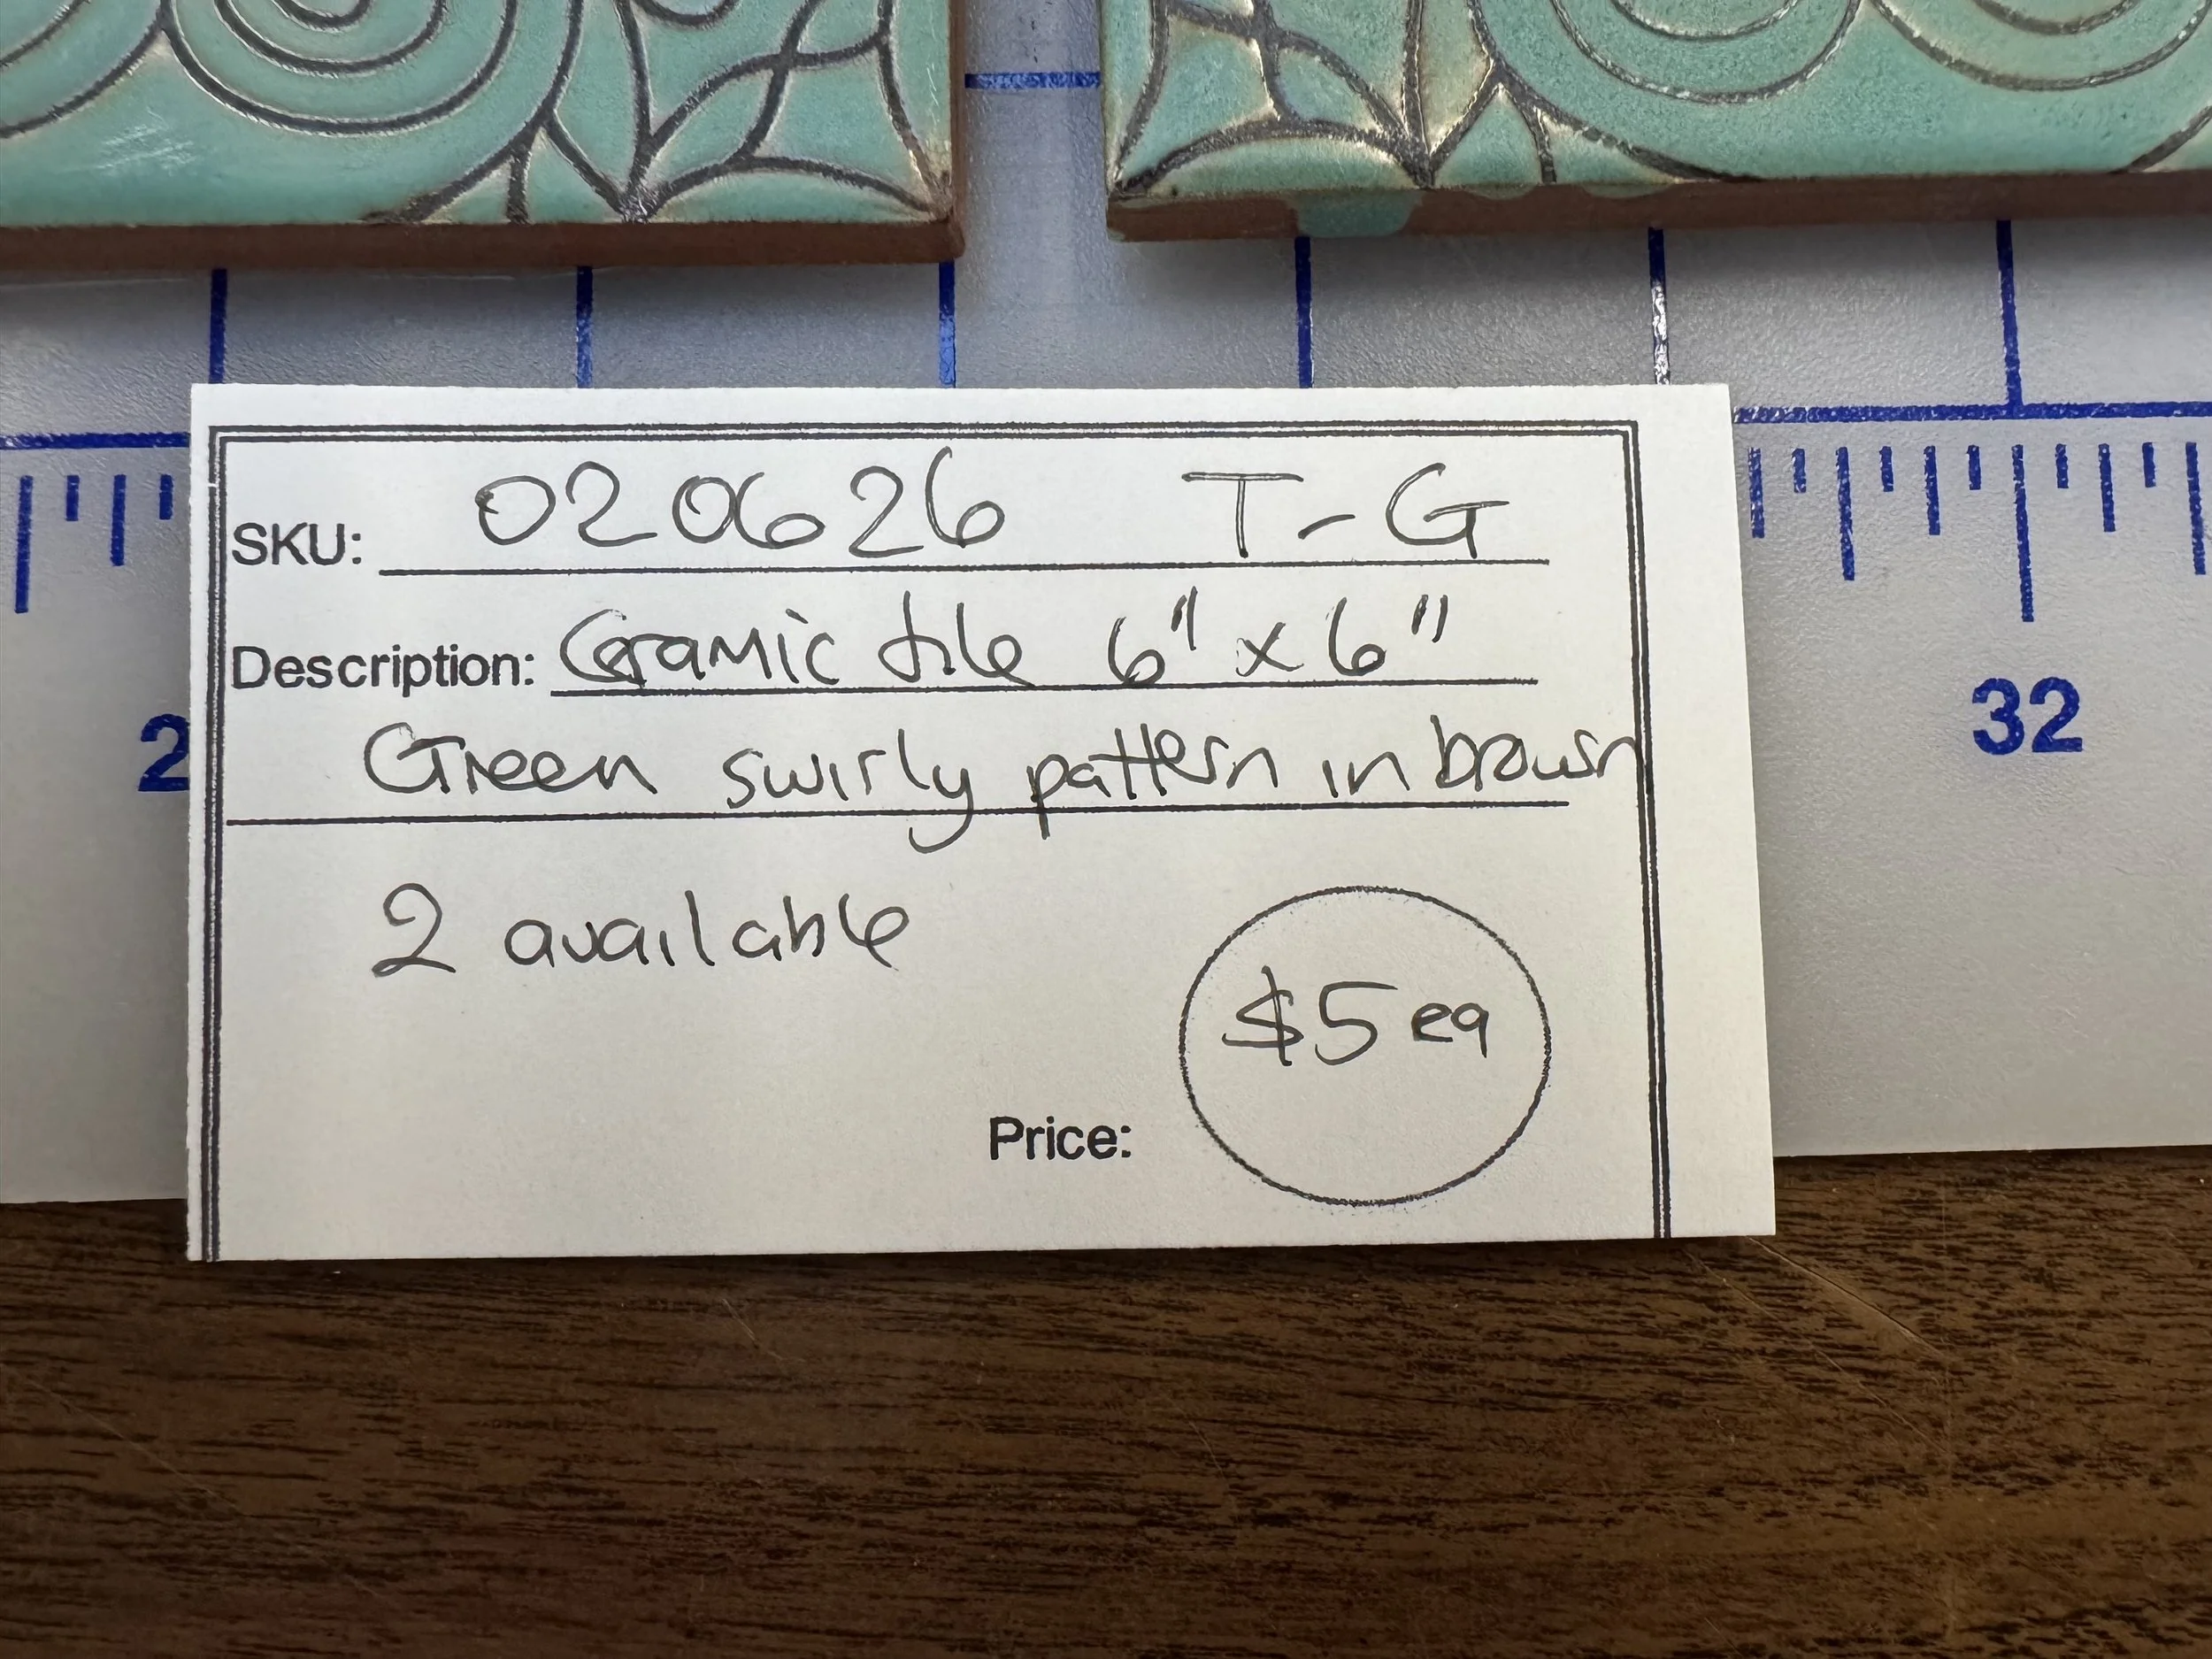 SKU: 020626 T-G
Description: Ceramic tile 6" x 6"
Green swirly pattern in brown
2 available
$5 ea
Price:
2
32